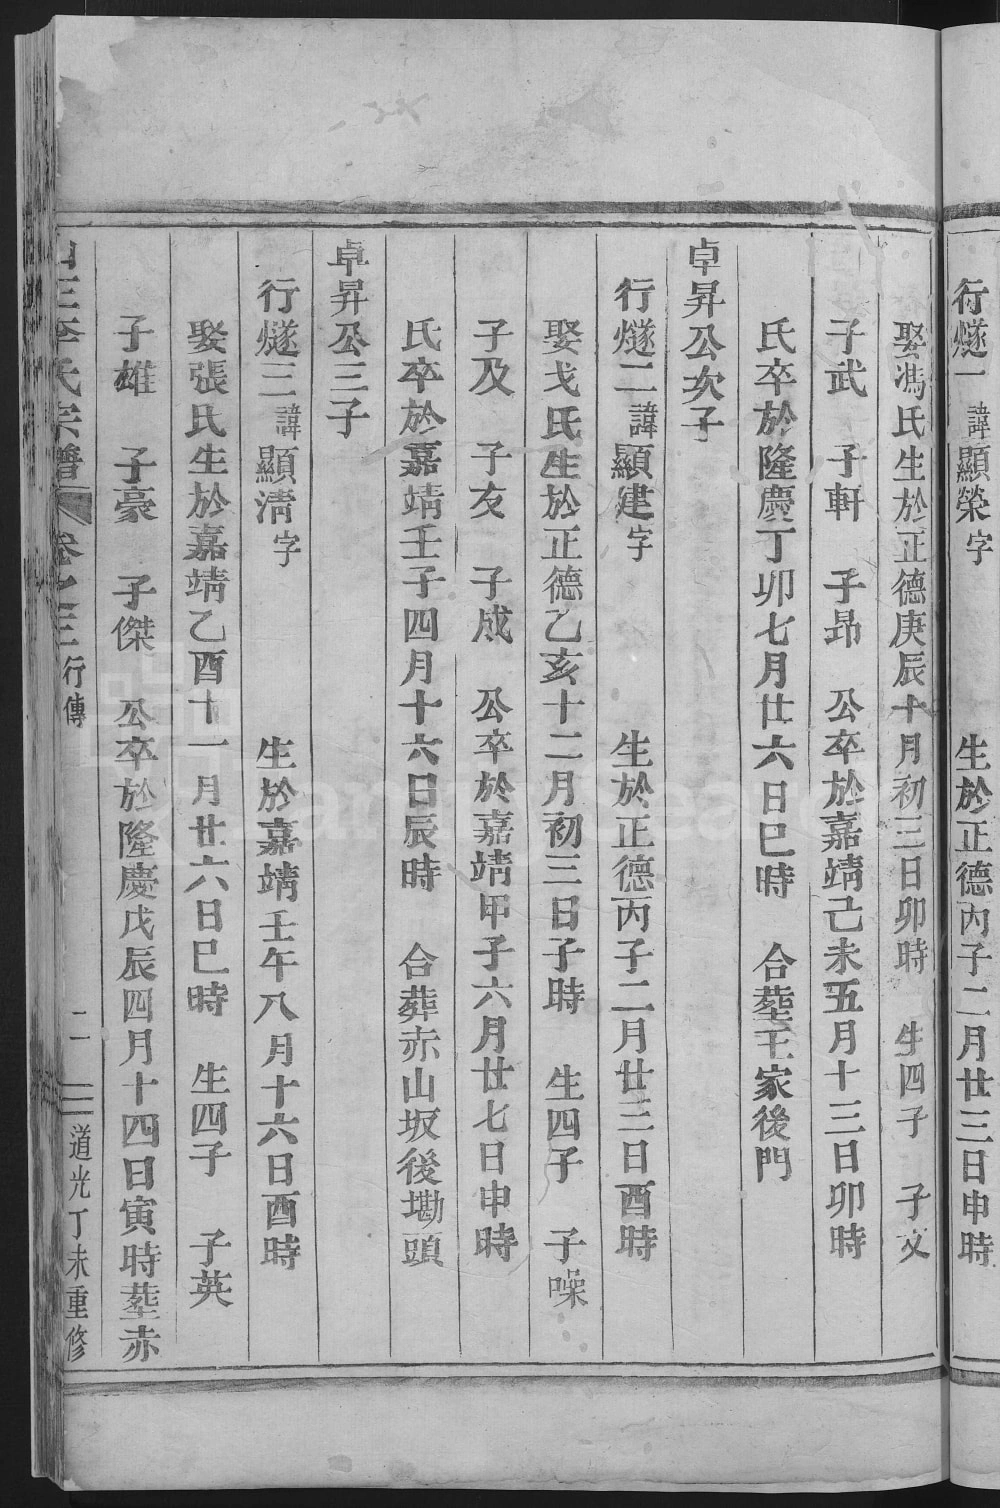 行燧一 諱顯榮字 生於正德丙子二月廿三日申時
娶馮氏生於正德庚辰十月初三日卯時 生四子 子文
子武 子軒 子昻 公卒於嘉靖己未五月十三日卯時
氏卒於隆慶丁卯七月廿六日巳時 合塟王家後門
卓昇公次子
行燧二 諱顯建字 生於正德丙子二月廿三日酉時
娶戈氏生於正德乙亥十二月初三日子時 生四子 子噪
子及 子友 子成 公卒於嘉靖甲子六月廿七日申時
氏卒於嘉靖壬子四月十六日辰時 合葬赤山坂後墈頭
卓昇公三子
行燧三 諱顯淸字 生於嘉靖壬午八月十六日酉時
娶張氏生於嘉靖乙酉十一月廿六日巳時 生四子 子英
子雄 子豪 子傑 公卒於隆慶戊辰四月十四日寅時塟赤
李氏宗譜 卷之三 行傳 二 道光丁未重修